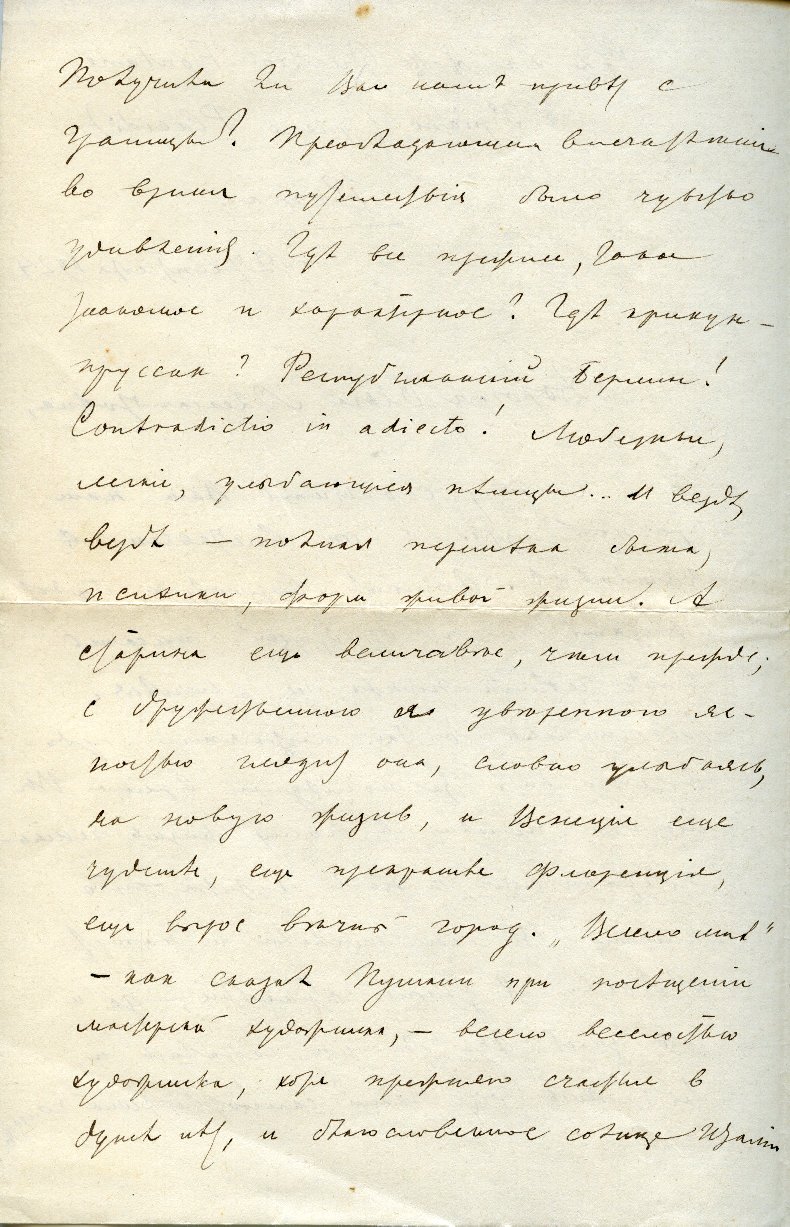 Получили ли Вы наш привѣт с
границы? Преобладающим впечатлѣніем
во время путешествія было чувство
удивленія. Гдѣ все прежнее,
знакомое и характерное? Гдѣ
пруссак? Республиканскій Берлин!
Contradictio in adiecto! Любезные,
легкіе, улыбающіеся нѣмцы... И вездѣ,
вездѣ — полная перемѣна быта,
психики, форм живой жизни. А
старина еще величавѣе, чѣм прежде;
с дружественною уверенною яс-
ностью глядит она, словно улыбаясь,
на новую жизнь, и Венеція еще
чудеснѣе, еще прекраснѣе Флоренція,
еще вырос вѣчный город. „Весело мнѣ"
— как сказал Пушкин при посѣщеніи
мастерской художника, — весело веселостью
художника, хотя прежняго счастья в
душѣ нѣт, и благословенное солнце Италіи